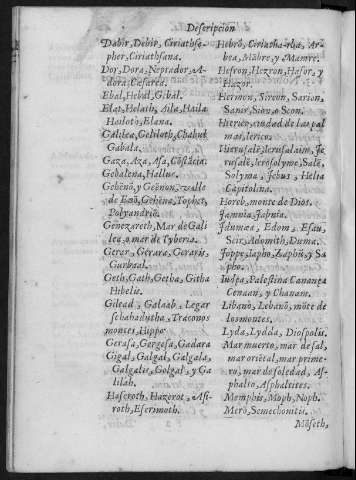 Descripcion
Dabir, Debir, Ciriathse-
pher, Ciriathsana.
Dor, Dora, Neptador, A-
dora, Cæsarea.
Ebal, Hebal, Gibal.
Elat, Helath, Aila, Haila
Hailoth, Elana.
Galilea, Geliloth, Chabul
Gabala.
Gaza, Aza, Asa, Costãcia.
Gobalena, Hallus.
Gehẽnõ, y Geẽnon, valle
de Gehẽna, Tophet,
Polyandriõ.
Genezareth, Mar de Gali
lea, o mar de Tyberia.
Gerar, Gerara, Geraris,
Gurbaal.
Geth, Gath, Getha, Githa
Hibelis.
Gilead, Galaab, Legar
schahadutha, Traconos
montes, Hippo.
Gerasa, Gergesa, Gadara
Gigal, Galgal, Galgala,
Galgalis, Golgal, y Ga
lilah.
Haseroth, Hazerot, Asi-
roth, Eserimoth.
Hebrõ, Ciriatha-rba, Ar-
bea, Mãbre, y Mamre.
Hesron, Hezron, Hasor, y
Hazor.
Hermon, Sireon, Sarion,
Sanir, Sion, o Scon.
Hierico, ciudad de las pal
mas, Ierico.
Hierusalẽ, Ierusalaim, Ie
rusalẽ, Ierosolyme, Salẽ,
Solyma, Iebus, Helia
Capitolina.
Horeb, monte de Dios.
Iamula, Iabnia.
Idumæa, Edom, Esau,
Seir, Adomith, Duma.
Ioppe, Iapho, Zaphõ, y Sa
pho.
Iudea, Palestina Cananea
Cenaan, y Chanam.
Libano, Lebanõ, mõte de
los montes.
Lyda, Lydda, Diospolis.
Mar muerto, mar de sal,
mar oriẽtal, mar prime-
ro, mar de soledad, As-
phalto, Asphaleites.
Memphis, Moph, Noph.
Merõ, Semechonitis.
Mõseth,